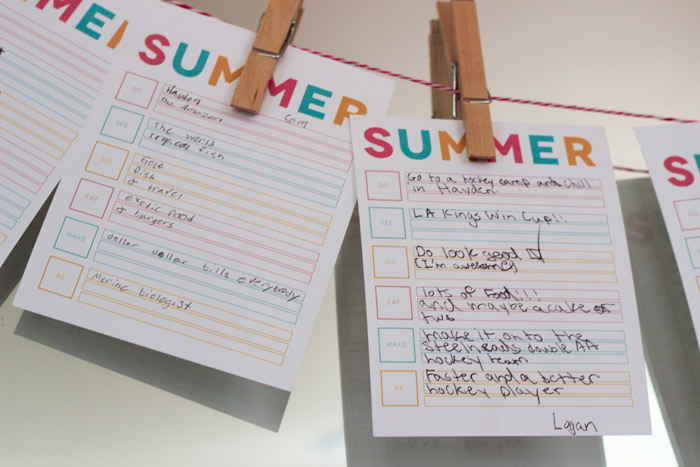 SUMMER
GO
Hayden
The Amazon
Cam
SEE
The world
tropical fish
DO
Golf
fish
& travel
EAT
exotic food
& burgers
MAKE
doller dollar bills everybody
BE
Marine biologist
SUMMER
GO
Go to a hockey camp and chill
in Hayden.
SEE
LA Kings Win Cup!!
DO
Do look good
(I'm awesome)
EAT
lots of Food!!!
and maybe a cake or
two
MAKE
make it on to the
steelheads double AA
hockey team
BE
Faster and a better
hockey player
Logan
SU